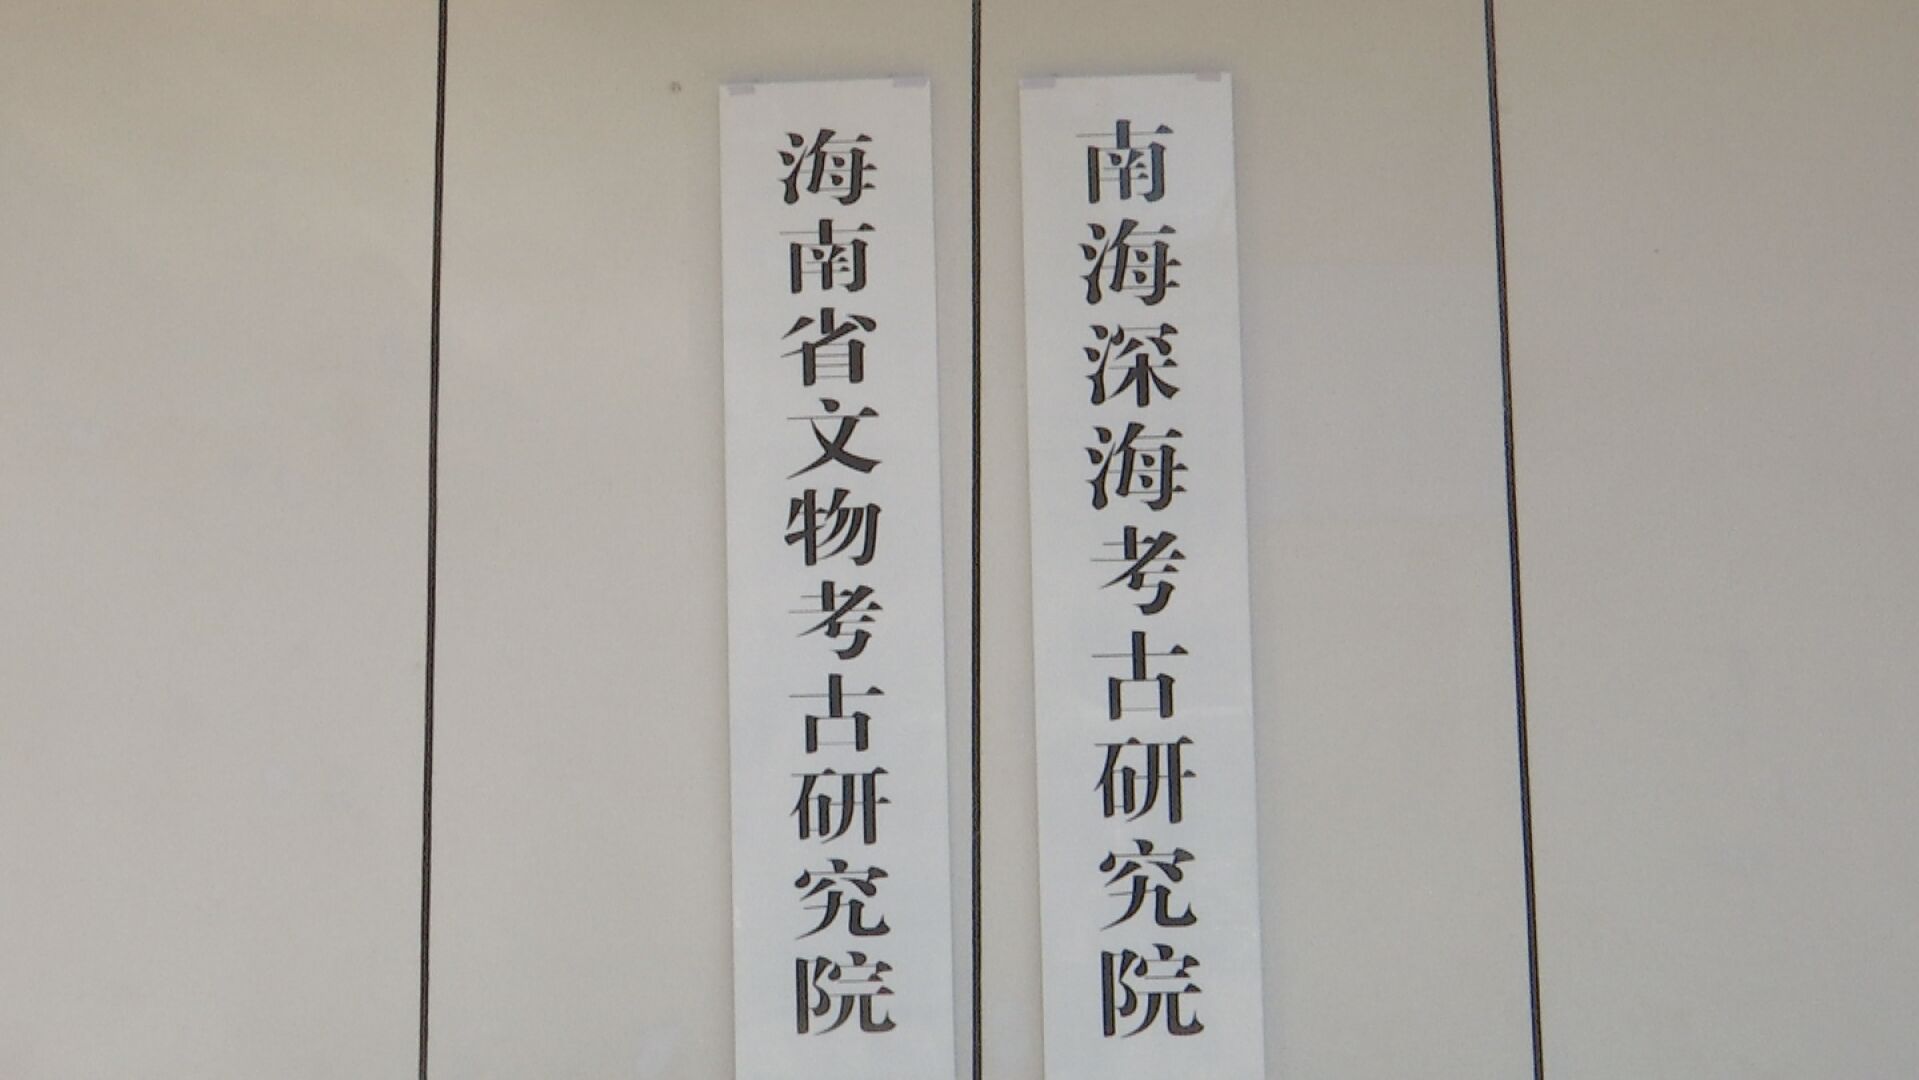 海南省文物考古研究院
南海深海考古研究院